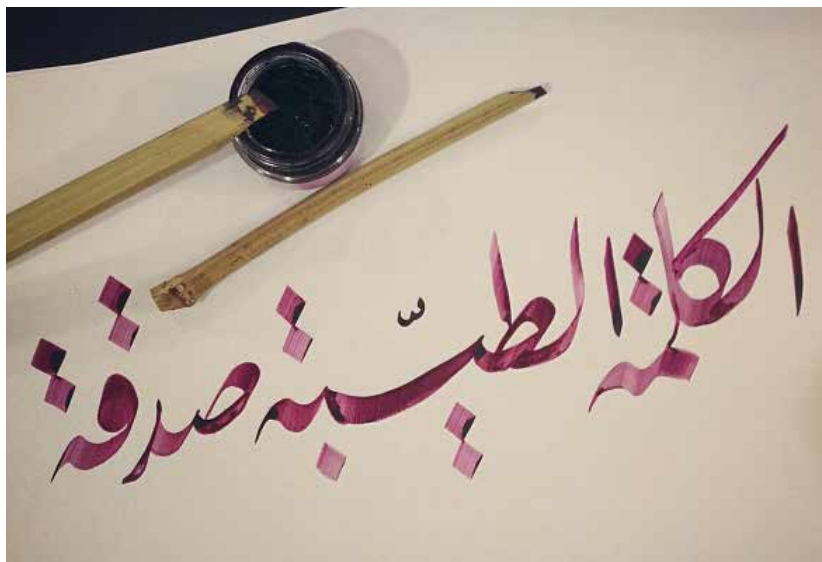 الكلمة الطيّبة صدقة